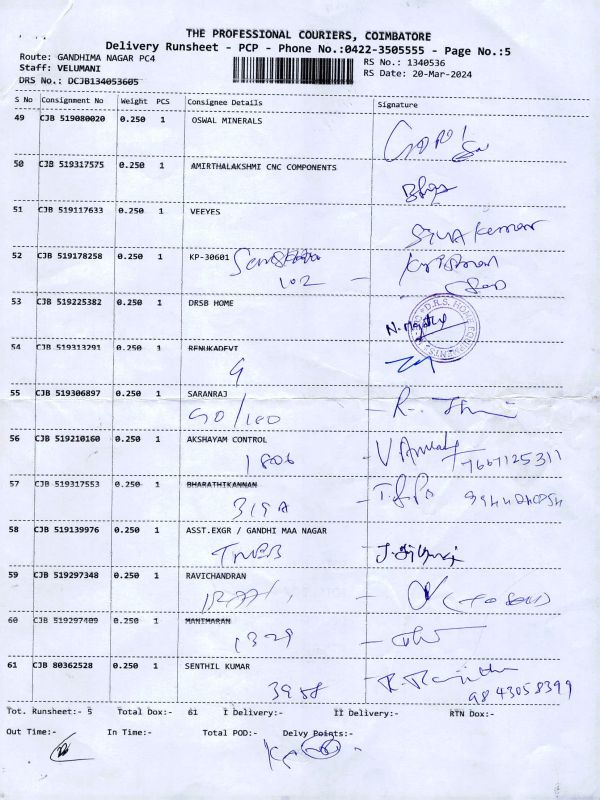 THE PROFESSIONAL COURIERS, COIMBATORE
Delivery Runsheet - PCP - Phone No.:0422-3505555 - Page No.:5
Route: GANDHIMA NAGAR PC4
Staff: VELUMANI
DRS No.: DCJB134053605
RS No.: 1340536
RS Date: 20-Mar-2024
S No Consignment No Weight PCS Consignee Details Signature
49 CJB 519080020 0.250 1 OSWAL MINERALS
50 CJB 519317575 0.250 1 AMIRTHALAKSHMI CNC COMPONENTS
51 CJB 519117633 0.250 1 VEEYES
Siva Kumar
52 CJB 519178258 0.250 1 KP-30601
102
53 CJB 519225382 0.250 1 DRSB HOME
54 CJB 519313291 0.250 1 RENUKADEVI
9
55 CJB 519306897 0.250 1 SARANRAJ
90/100
56 CJB 519210160 0.250 1 AKSHAYAM CONTROL
1806
7667125311
57 CJB 519317553 0.250 1 BHARATHIKANNAN
319A
58 CJB 519139976 0.250 1 ASST.EXGR / GANDHI MAA NAGAR
TNEB
59 CJB 519297348 0.250 1 RAVICHANDRAN
60 CJB 519297409 0.250 1 MANIMARAN
1329
61 CJB 80362528 0.250 1 SENTHIL KUMAR
3958
9843058399
Tot. Runsheet:- 5 Total Dox:- 61 I Delivery:- II Delivery:- RTN Dox:-
Out Time:- In Time:- Total POD:- Delvy Points:-